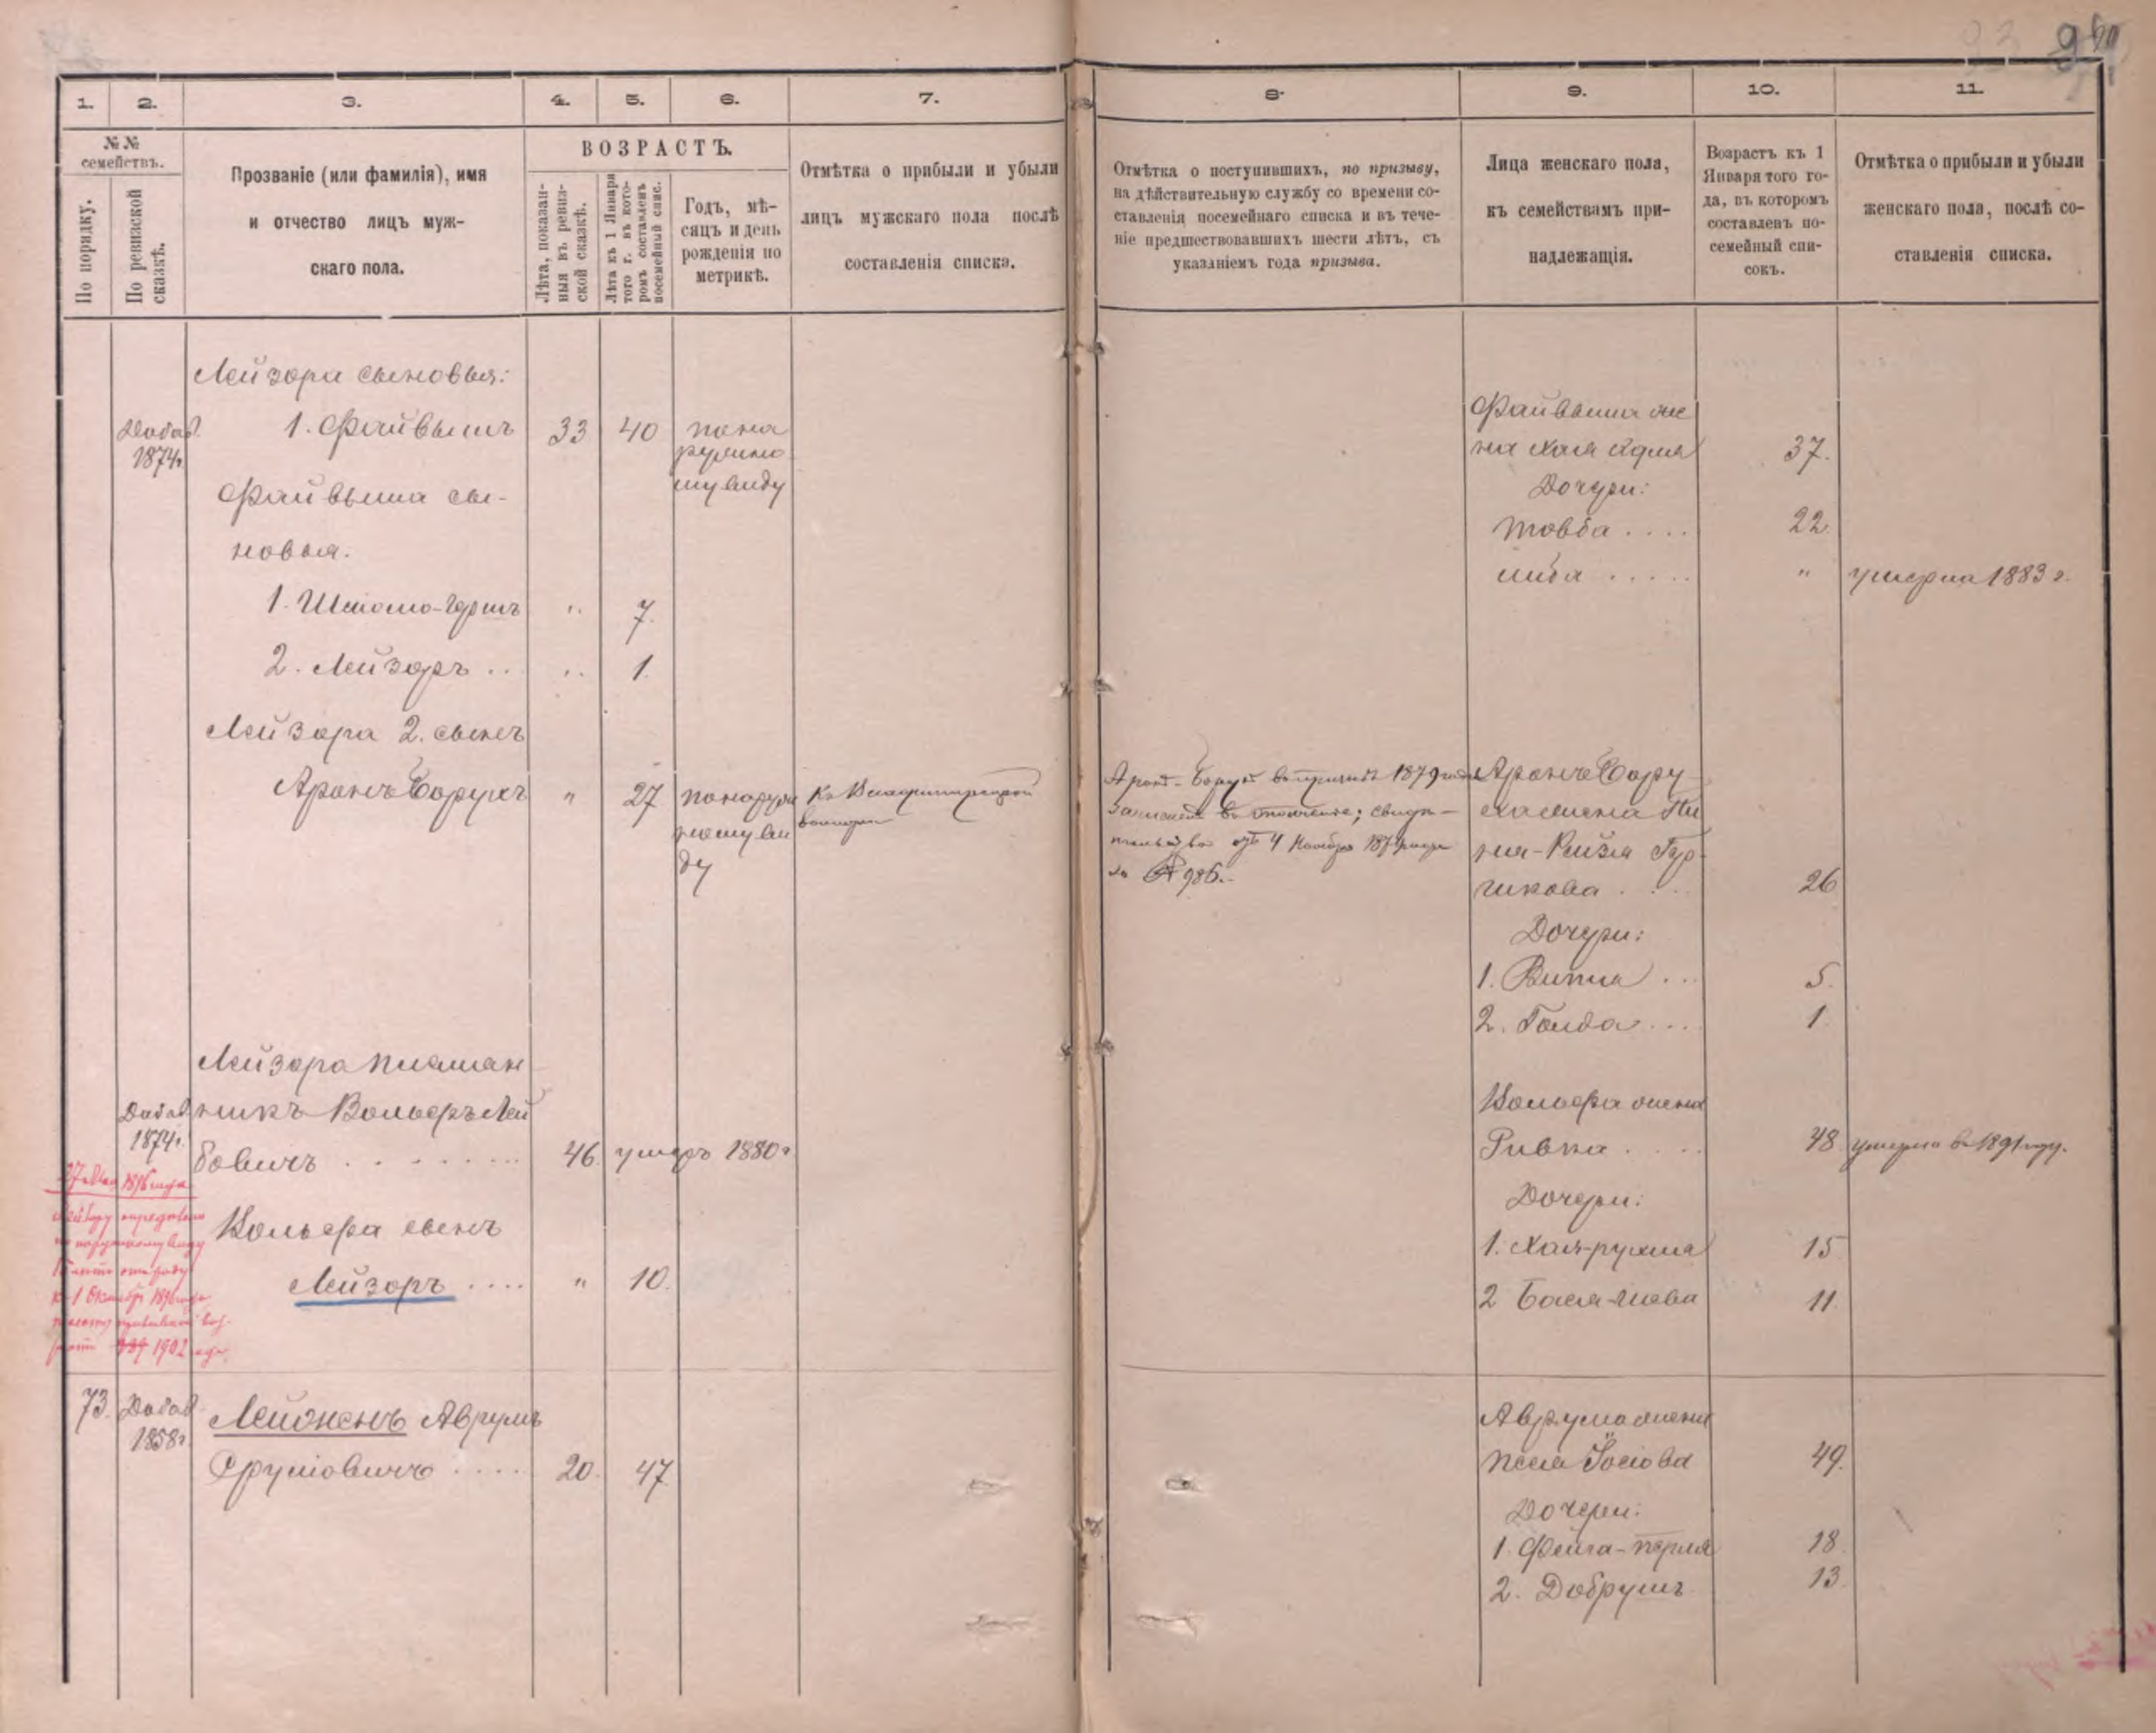 1.
2.
3.
4.
5.
6.
7.
№№ семействъ.
По порядку.
По ревизской сказкѣ.
Прозваніе (или фамилія), имя
и отчество лицъ муж-
скаго пола.
ВОЗРАСТЪ.
Лѣта, показан-
ныя въ ревиз-
ской сказкѣ.
Лѣта къ 1 Января
того г. въ кото-
ромъ составленъ
посемейный спис.
Годъ, мѣ-
сяцъ и день
рожденія по
метрикѣ.
Отмѣтка о прибыли и убыли
лицъ мужскаго пола послѣ
составленія списка.
Лейзора сыновья:
Добав. 1874г.
1. Файвышъ 33 40 по на
ружно
му виду
Файвыша сы-
новья.
1. Шліомо-Гершъ " 7.
2. Лейзоръ ... " 1.
Лейзора 2. сынъ
Аронъ Борухъ " 27 по наруж
ному ви
ду
Лейзора племян
Добав 1874г.
никъ Вольфъ Лей
бовичъ 46. умеръ 1880г
Вольфа сынъ
Лейзоръ .... " 10.
1902
73. Добав 1858г.
Лейженъ Аврумъ
Сруліовичъ 20. 47
8.
9.
10.
11.
Отмѣтка о поступившихъ, по призыву,
на дѣйствительную службу со времени со-
ставленія посемейнаго списка и въ тече-
ніе предшествовавшихъ шести лѣтъ, съ
указаніемъ года призыва.
Лица женскаго пола,
къ семействамъ при-
надлежащія.
Возрастъ къ 1
Января того го-
да, въ которомъ
составленъ по-
семейный спи-
сокъ.
Отмѣтка о прибыли и убыли
женскаго пола, послѣ со-
ставленія списка.
Файвыша же
на Хая 37.
Дочери:
Товба .... 22.
Либа ..... " умерла 1883 г.
Аронъ-Борухъ въ призывъ 1879 года
ополченіе; свидѣ-
тельство отъ 4 Ноября 1879 года
за № 986.
Аронъ Бору
ха жена
ня-Рейзя
26
Дочери:
1. Витля ... 5.
2. Голда .... 1.
Вольфа жена
Ривка .... 48 умерла въ 1891 году.
Дочери:
1. Хая-рухля 15
2 Бася-Шева 11.
Аврума жена
Песя Іосіова 49.
Дочери:
1. Фейга-перля 18.
2. Добрушъ 13.